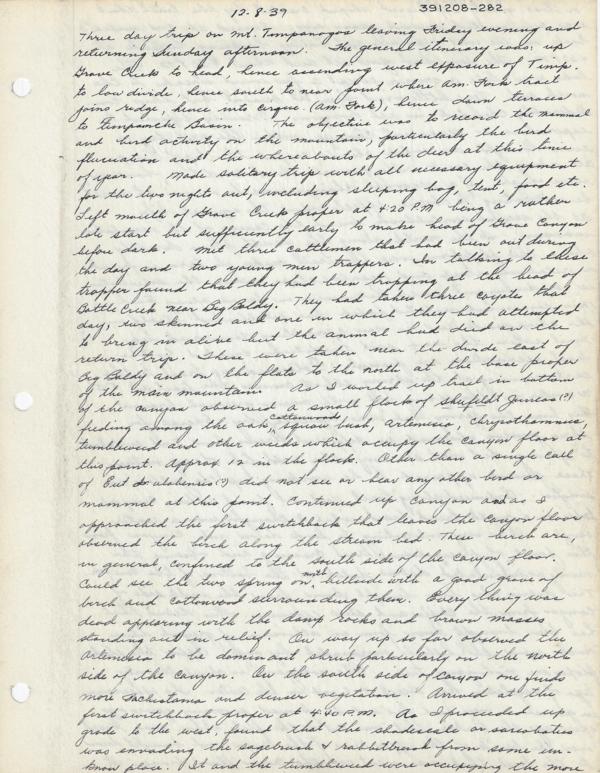 12-8-39
391208-282
Three day trip on Mt. Timpanogos leaving Friday evening and
returning Sunday afternoon. The general itinerary was: up
Grove Creek to head, hence ascending west exposure of Timp.
to low divide, hence south to near point where Am. Fork trail
joins ridge, hence into cirque (Am. Fork), hence down terraces
to Timpanoke Basin. The objective was to record the mammal
and bird activity on the mountain, particularly the bird
flucuation and the whereabouts of the deer at this time
of year. Made solitary trip with all necessary equipment
for the two nights out, including sleeping bag, tent, food etc.
Left mouth of Grove Creek proper at 4:20 P.M. being a rather
late start but sufficiently early to make head of Grove Canyon
before dark. Met three cattlemen that had been out during
the day and two young men trappers. In talking to these
trapper found that they had been trapping at the head of
Battle Creek near Big Baldy. They had taken three coyotes that
day, two skinned and one in which they had attempted
to bring in alive but the animal had died on the
return trip. These were taken near the divide east of
Big Baldy and on the flats to the north at the base proper
of the main mountain. As I worked up trail in bottom
of the canyon observed a small flock of Shufeldt Juncos(?)
feeding among the oak, cottonwood, squaw bush, artemisia, chrysothamnus,
tumbleweed and other weeds which occupy the canyon floor at
this point. Approx 12 in the flock. Other than a single call
of Eut. d. utahensis(?) did not see or hear any other bird or
mammal at this point. Continued up canyon and as I
approached the first switchback that leaves the canyon floor
observed the birch along the stream bed. These birch are,
in general, confined to the south side of the canyon floor.
Could see the two spring on north hillside with a good grove of
birch and cottonwood surrounding them. Every thing was
dead appearing with the damp rocks and brown masses
standing out in relief. On way up so far observed the
Artemisia to be dominant shrub particularly on the north
side of the canyon. On the south side of canyon one finds
more and denser vegetation. Arrived at the
first switchback proper at 4:40 P.M. As I proceeded up
grade to the west, found that the shadescale or sarcobatus
was invading the sagebrush & rabbitbrush from some un-
know place. It and the tumbleweed were occupying the more